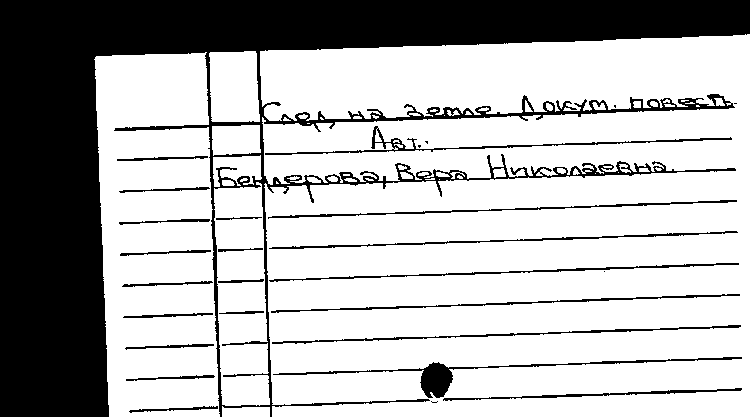 След на земле. Докум. повесть
Авт.:
Бендерова, Вера Николаевна.